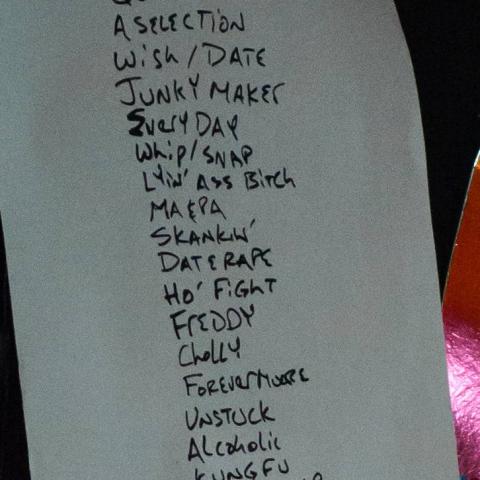 A SELECTION
WiSh / DATE
JUNKY MAKER
EveryDAY
Whip / SNAP
LYiN' ASS BiTCh
MA & PA
SKANKIN'
DATERAPE
HO' FiGHT
FREDDY
ChollY
FOREVERMOORE
UNSTUCK
Alcoholic
KUNG FU